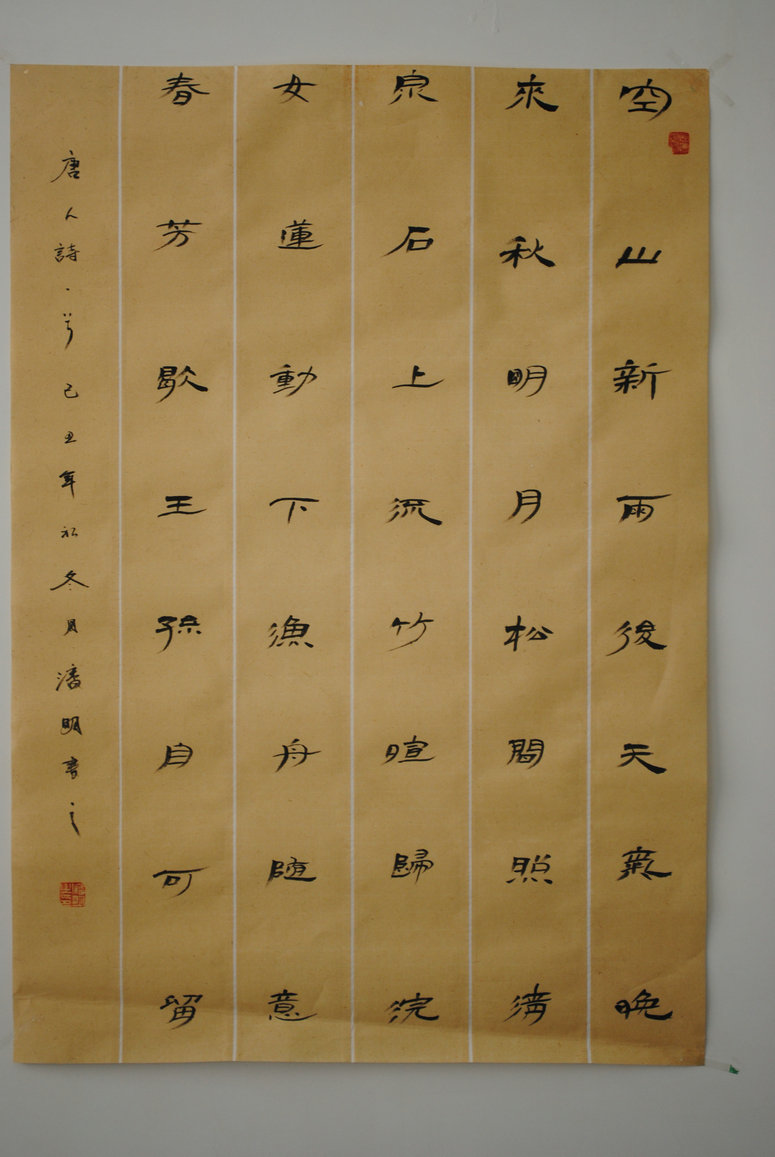 空山新雨後天氣晚
來秋明月松間照清
泉石上流竹暄歸浣
女蓮動下漁舟随意
春芳歇王孫自可留
唐人詩一首己丑年初冬月潘明書之